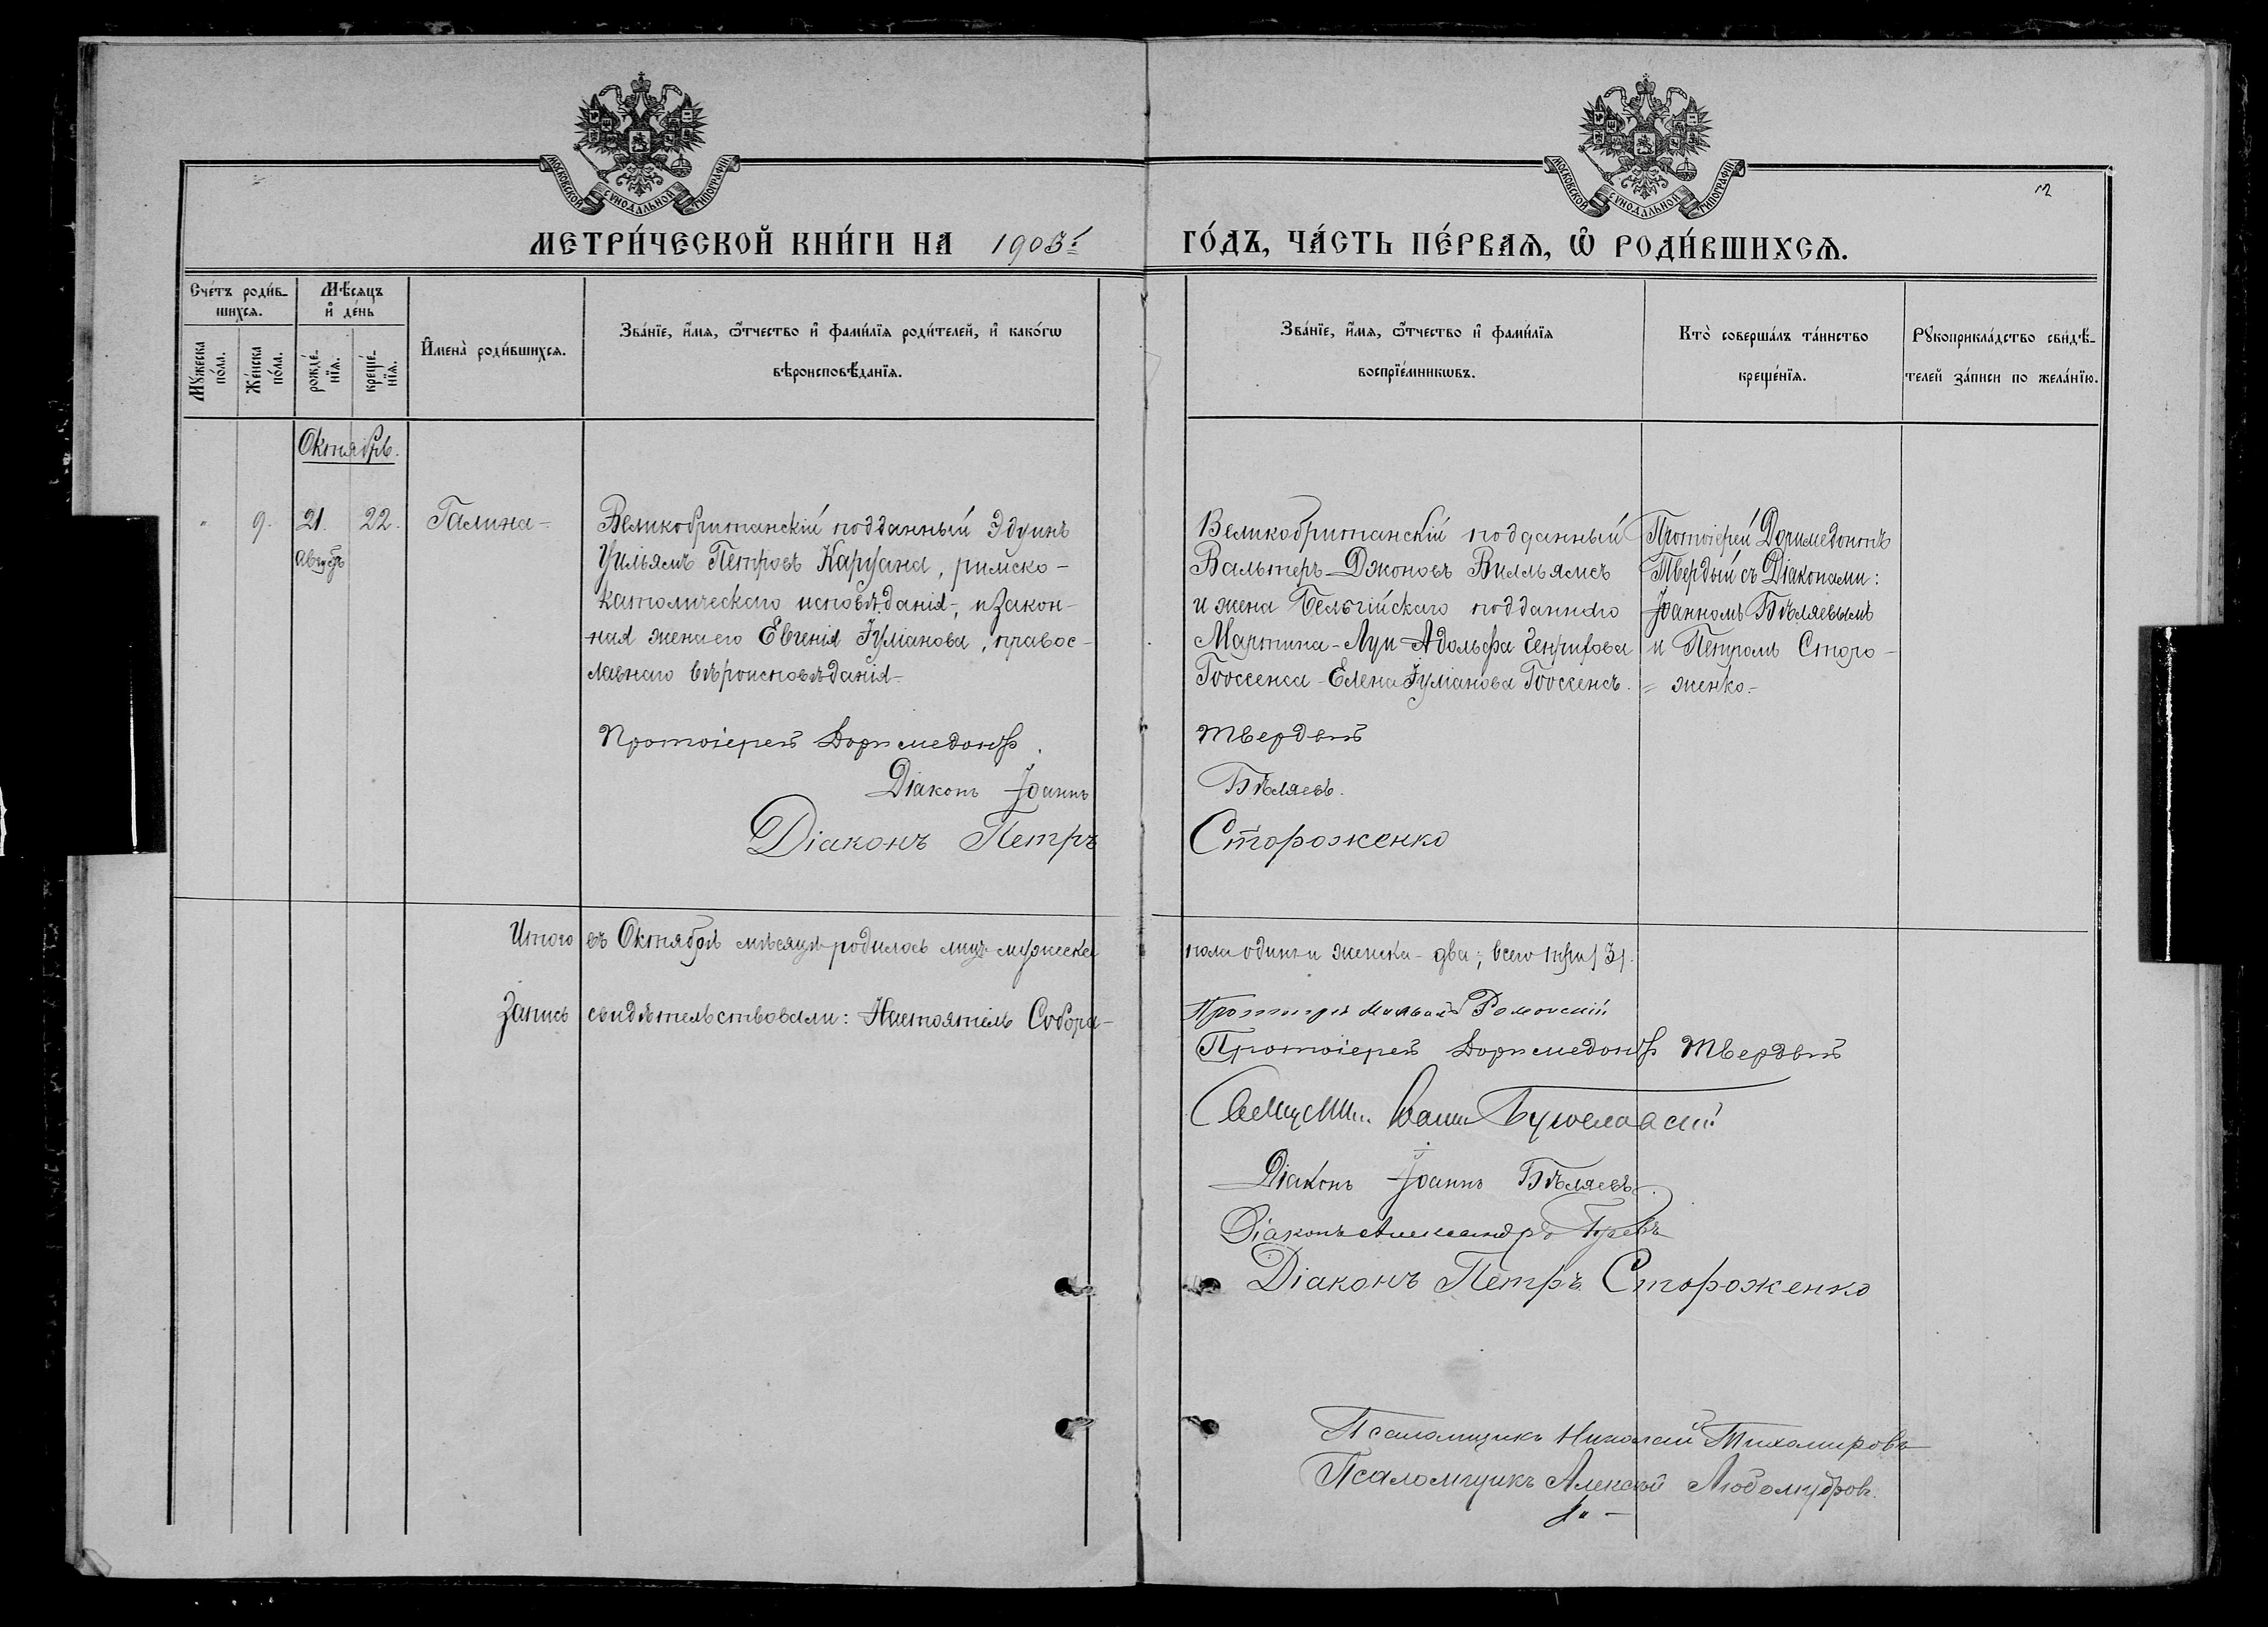 МОСКОВСКОЙ СѴНОДАЛЬНОЙ ТИПОГРАФІИ
МОСКОВСКОЙ СѴНОДАЛЬНОЙ ТИПОГРАФІИ
МЕТРИ́ЧЕСКОЙ КНИ́ГИ НА 1903й ГО́ДЪ, ЧА́СТЬ ПЕ́РВАѦ, Ѡ҆ РОДИ́ВШИХСѦ.
Сче́тъ роди́в-
шихсѧ.
Мꙋ́жеска
по́ла.
Же́нска
по́ла.
Мѣ́сѧцъ
и҆ де́нь
рожде́-
нїѧ.
креще́-
нїѧ.
И҆мена̀ роди́вшихсѧ.
Зва́нїе, и҆́мѧ, ѻ҆́тчество и҆ фами́лїѧ роди́телей, и҆ како́гѡ
вѣроисповѣ́данїѧ.
Зва́нїе, и҆́мѧ, ѻ҆́тчество и҆ фами́лїѧ
воспрїе́мникѡвъ.
Кто̀ соверша́лъ та́инство
креще́нїѧ.
Рꙋкоприкла́дство свидѣ́-
телей за́писи по жела́нїю.
Октябрь.
" 9. 21. 22. Галина-
Августъ
Великобританскій подданный Эдуинъ
Уильямъ Петровъ Каруана, римско-
католическаго исповѣданія-, и закон-
ная жена его Евгенія Іуліанова, правос-
лавнаго вѣроисповѣданія-
Великобританскій подданный
Вальтеръ-Джоновъ Вилльямсъ
и жена Бельгійскаго подданнаго
Мартина-Луи-Адольфа Генрихова
Гооссенса-Елена Іуліанова Гооссенсъ.
Протоіерей Доримедонтъ
Твердый съ Діаконами:
Іоанномъ Бѣляевымъ
и Петромъ Сторо-
= женко.-
Протоіерей Доримедонтъ Твердый
Діаконъ Іоаннъ Бѣляевъ.
Діаконъ Петръ Стороженко
Итого въ Октябрѣ мѣсяцѣ родилось лицъ мужеска пола одинъ и женска - два; всего три /3/.
Запись свидѣтельствовали: Настоятель Собора-
Протоіерей Романскій
Протоіерей Доримедонтъ Твердый
Священ. Іоаннъ
Діаконъ Іоаннъ Бѣляевъ.
Діаконъ Александръ
Діаконъ Петръ Стороженко
Псаломщикъ Николай Тихомировъ
Псаломщикъ Алексѣй Любомудровъ.